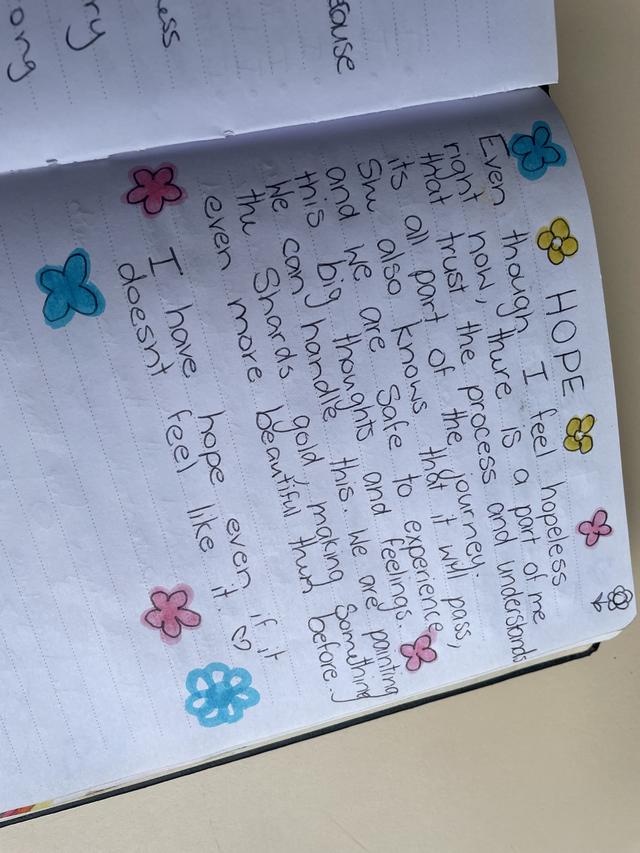 ause
ess
ry
ong
HOPE
Even though I feel hopeless
right now, there is a part of me
that trust the process and understands
its all part of the journey.
She also knows that it will pass,
and we are safe to experience
this big thoughts and feelings.
We can handle this. We are painting
the Shards gold, making something
even more beautiful than before.
I have hope even if it
doesnt feel like it. ♡